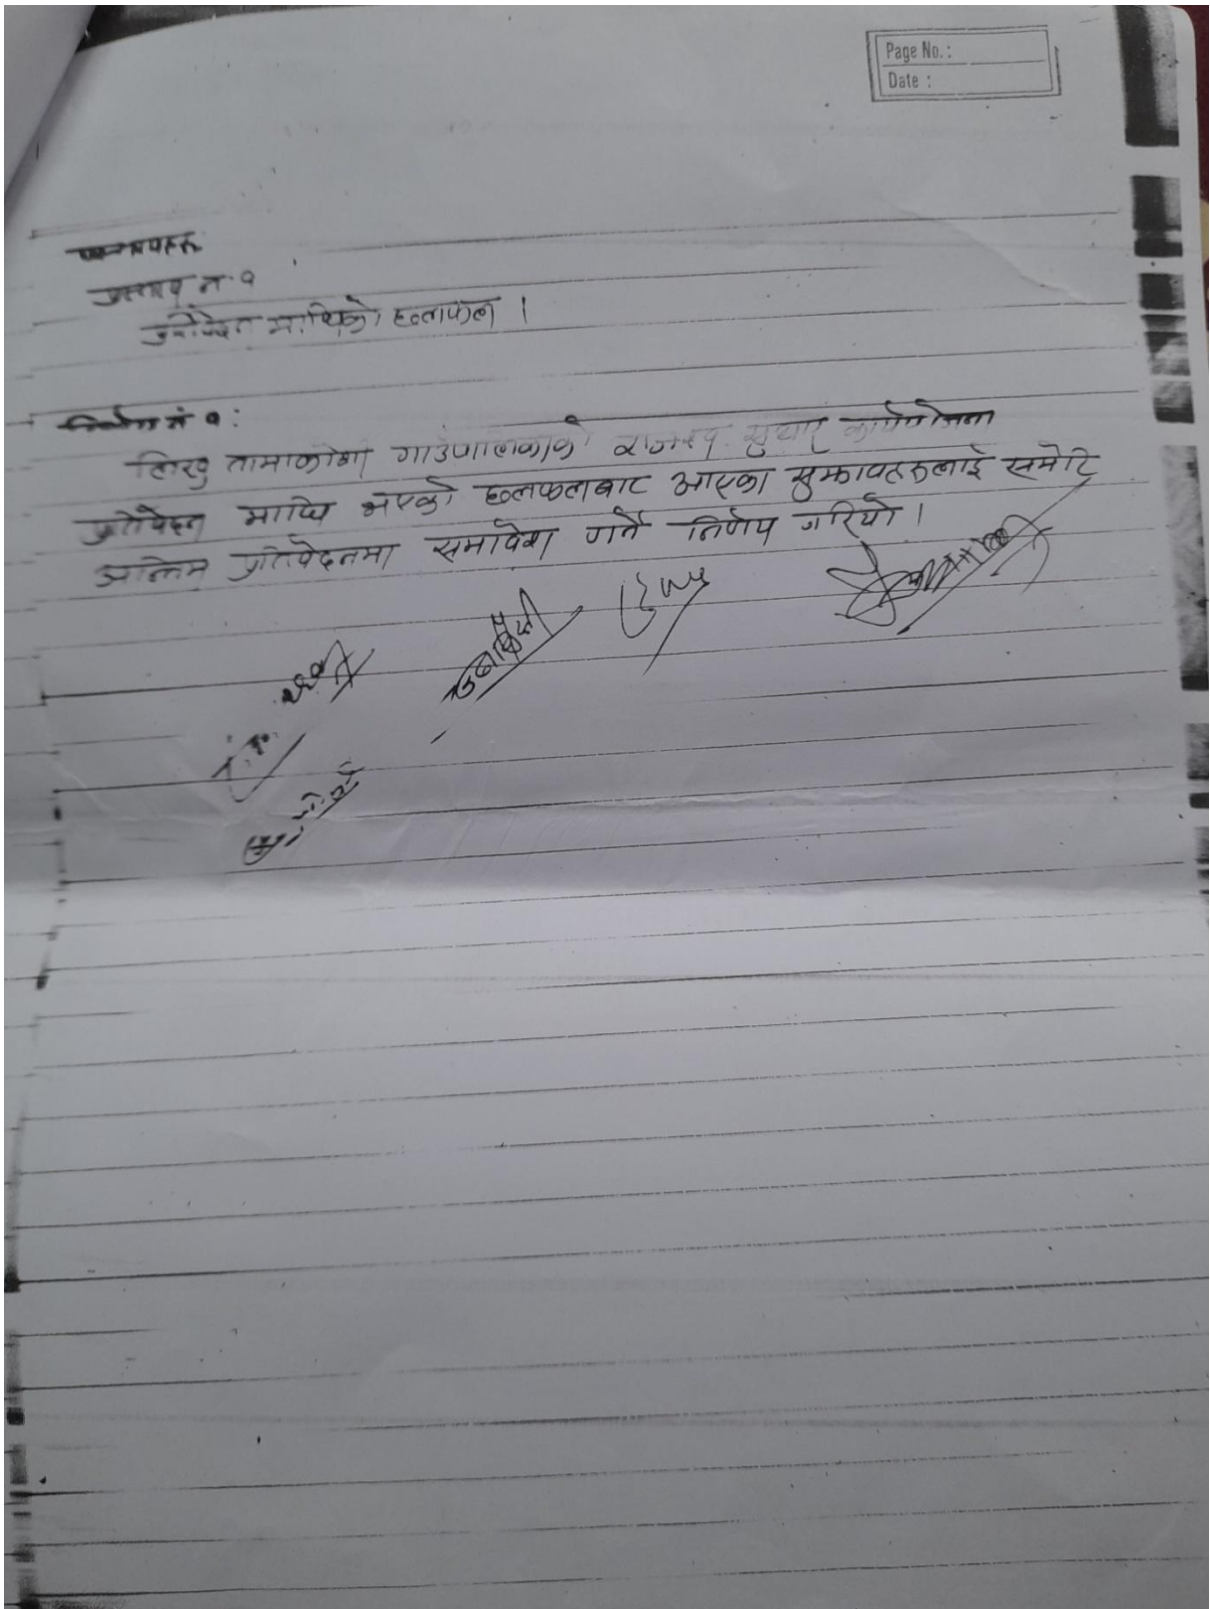 Page No. :
Date :
प्रस्तावहरु
प्रस्ताव नं १
प्रतिवेदन माथिको छलफल ।
निर्णय नं १:
लिखु तामाकोशी गाउँपालिकाको राजस्व सुधार कार्ययोजना
प्रतिवेदन माथि भएको छलफलबाट आएका सुझावहरुलाई समेटि
अन्तिम प्रतिवेदनमा समावेश गर्ने निर्णय गरियो ।